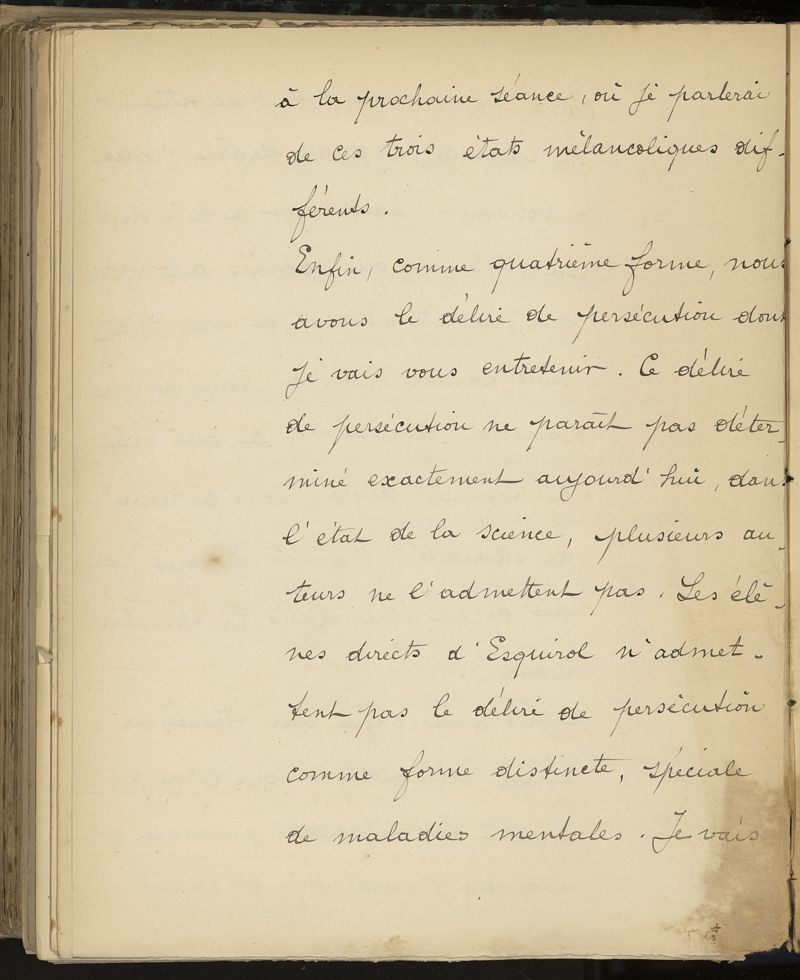 à la prochaine séance, où je parlerai
de ces trois états mélancoliques dif-
férents.
Enfin, comme quatrième forme, nous
avons le délire de persécution dont
je vais vous entretenir. Ce délire
de persécution ne paraît pas déter-
miné exactement aujourd'hui, dans
l'état de la science, plusieurs au-
teurs ne l'admettent pas. Les élè-
ves directs d'Esquirol n'admet-
tent pas le délire de persécution
comme forme distincte, spéciale
de maladies mentales. Je vais